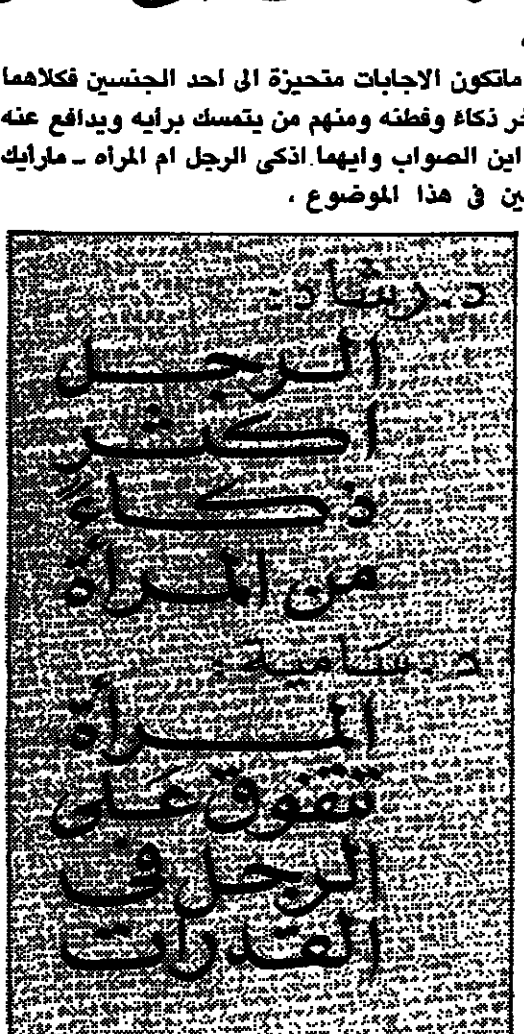 ماتكون الاجابات متحيزة الى احد الجنسين فكلاهما
خر ذكاءً وفطنه ومنهم من يتمسك برأيه ويدافع عنه
اين الصواب وايهما اذكى الرجل ام المرأه ـ مارأيك
ين في هذا الموضوع ،
د. رشاد:
الرجل
اكثر
ذكاءً
من المرأة
د. سامية:
المرأة
تتفوق على
الرجل في
القدرات